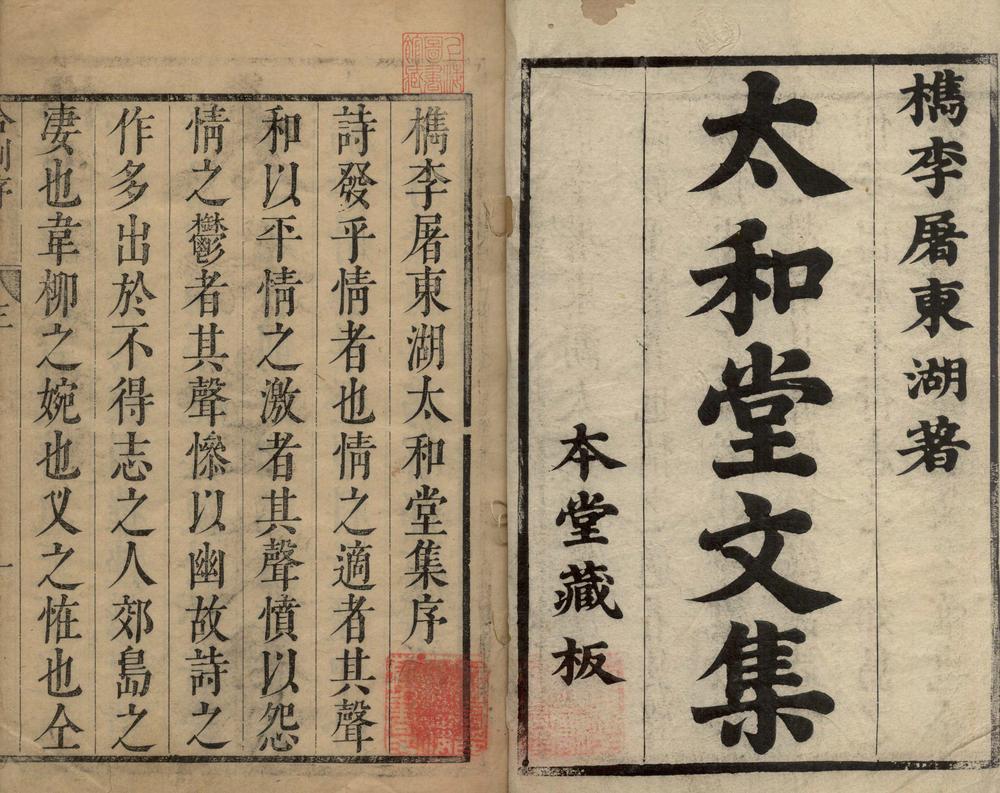 檇李屠東湖著
太和堂文集
本堂藏板
檇李屠東湖太和堂集序
詩發乎情者也情之適者其聲
和以平情之激者其聲憤以怨
情之鬱者其聲慘以幽故詩之
作多出於不得志之人郊島之
凄也韋柳之婉也义之恠也仝